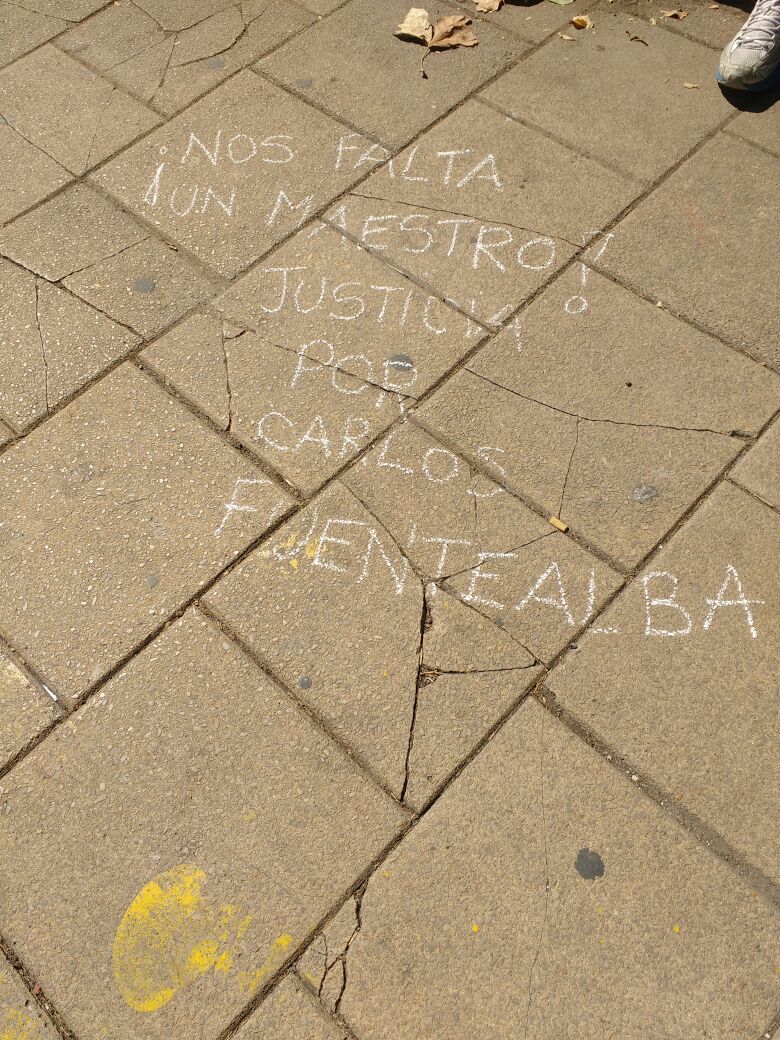 ¡NOS FALTA
¡UN MAESTRO!
JUSTICIA
POR
CARLOS
FUENTEALBA